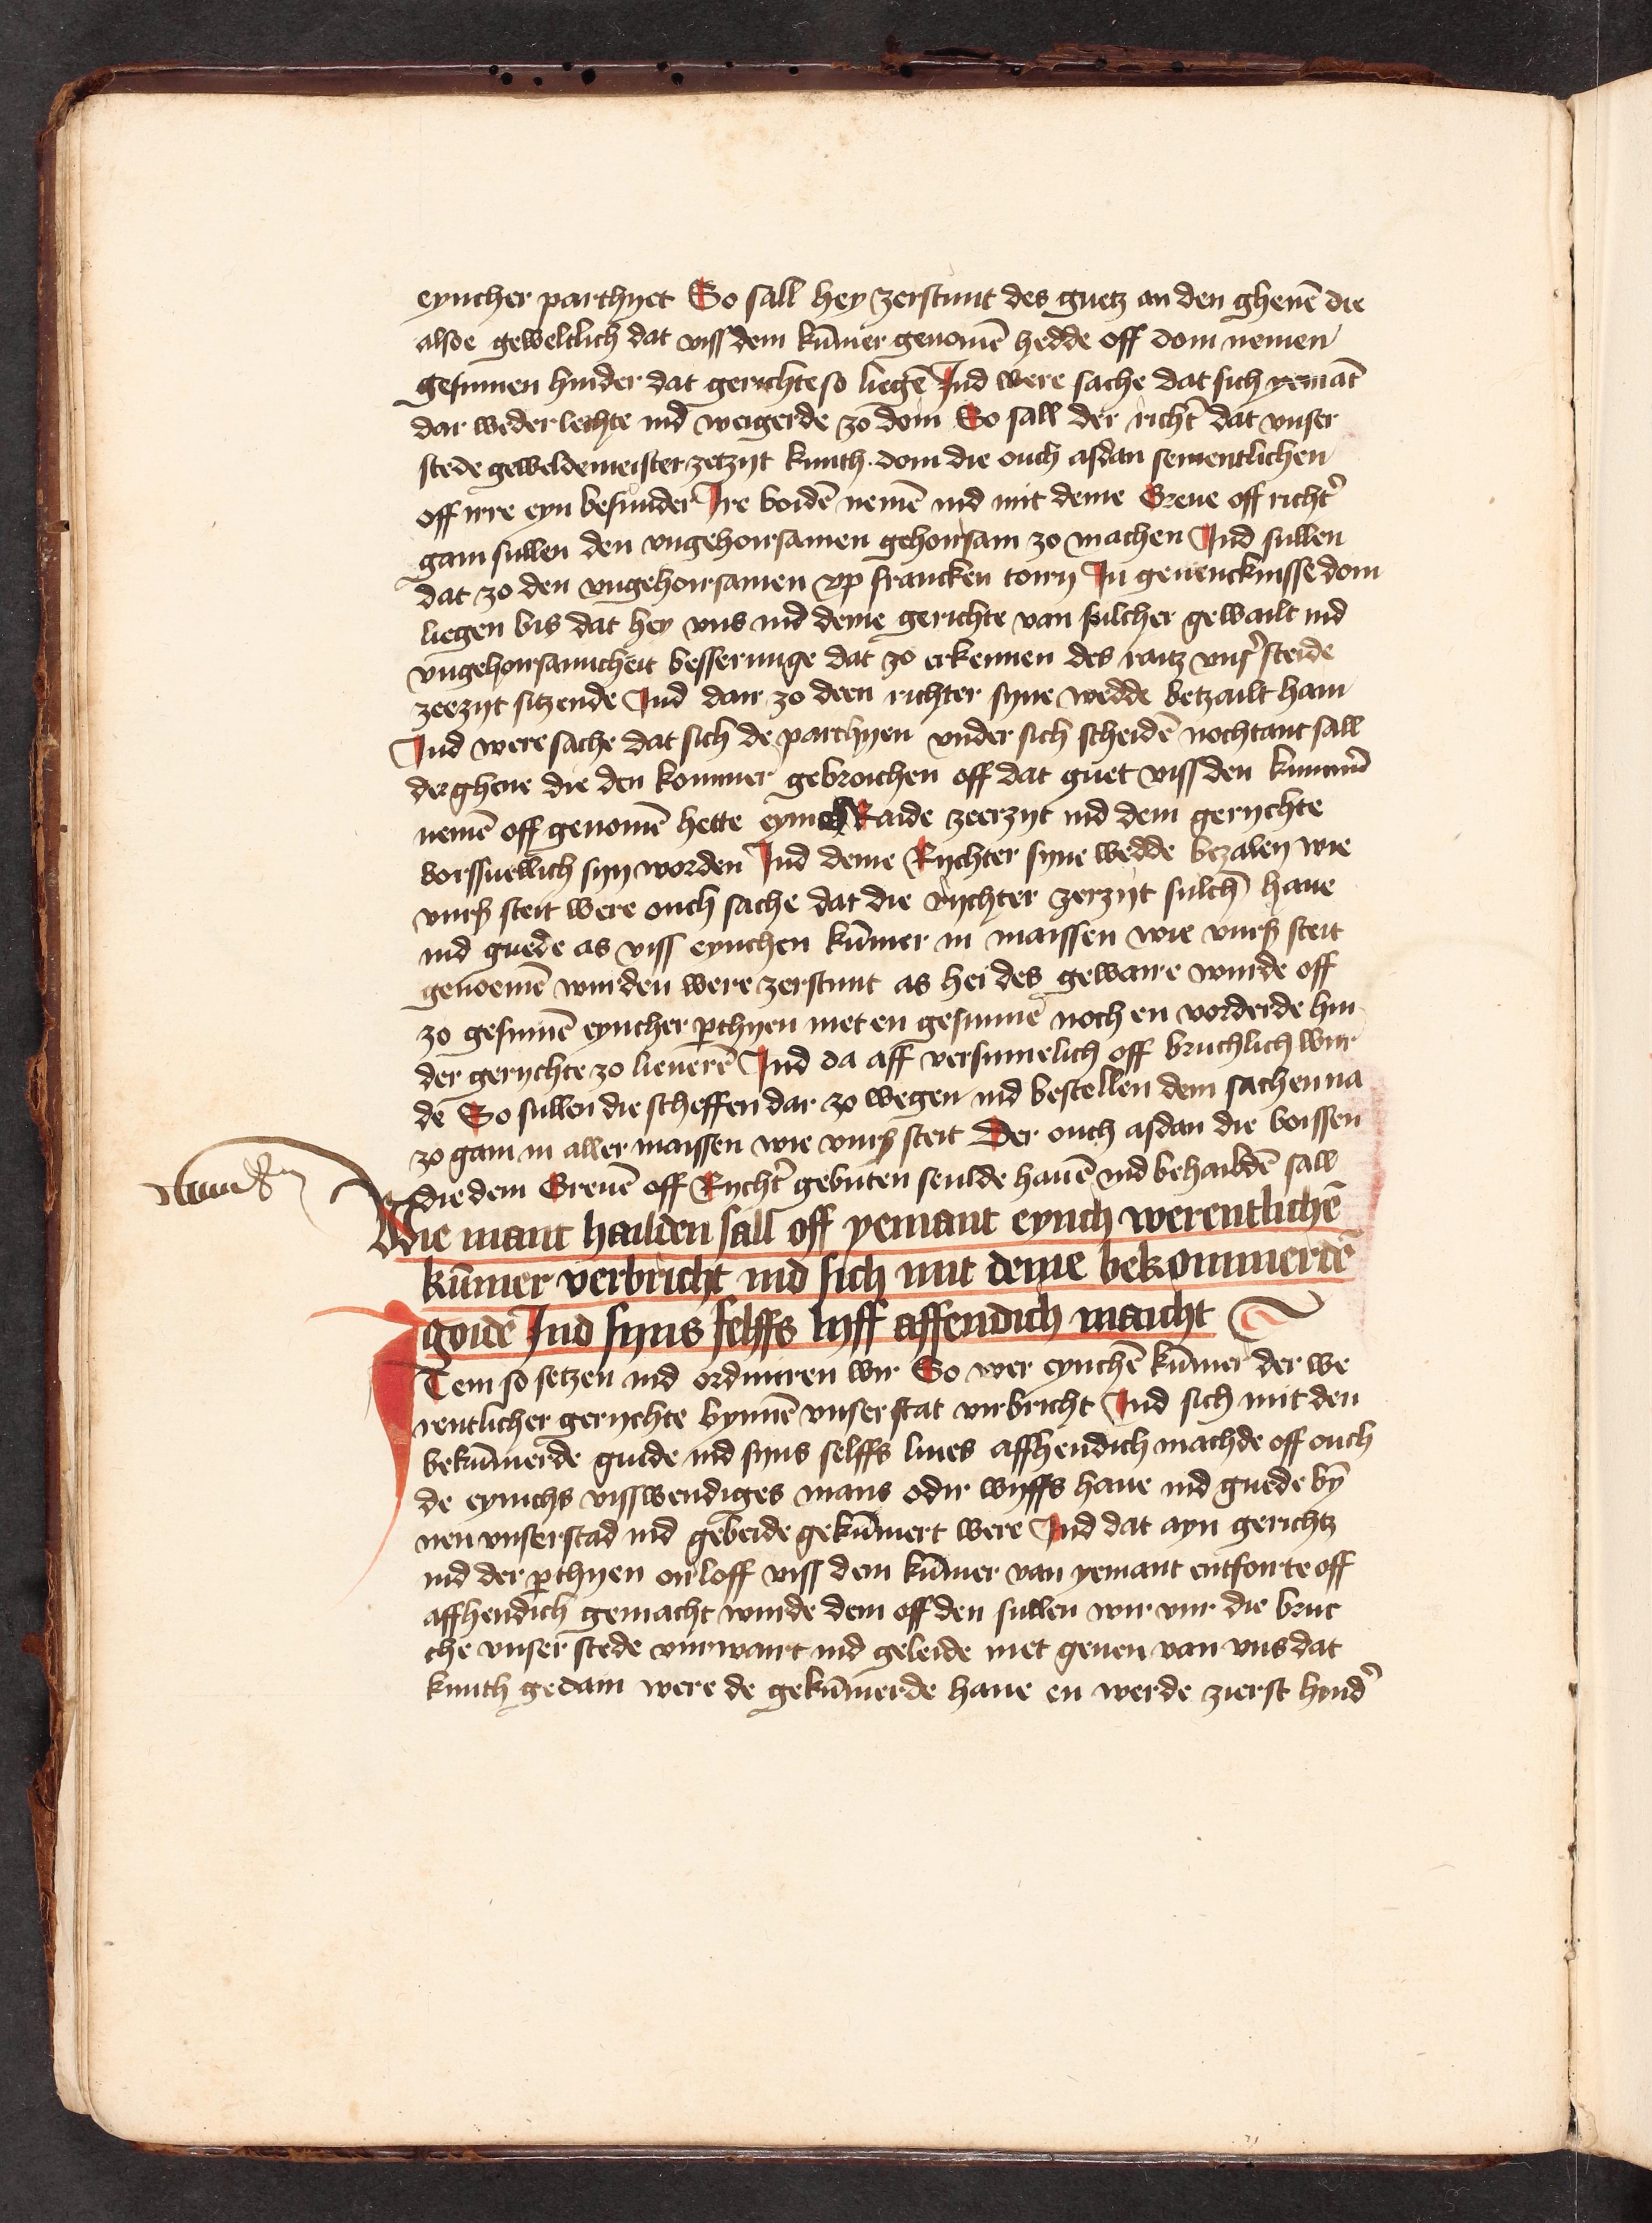 eyncher parthyet So sall hey zerstunt des guetz an den ghenē die
alsoe geweltlich dat viss dem kūmer genomē hedde off doin nemen
gesinnen hinder dat gerichte so liegē Ind were sache dat sich yemāt
dar wederlechte ind weigerde zo doin So sall der richt' dat vnser
stede geweldemeister zerzijt kunth doin die ouch asdan sementlichen
off irre eyn besunder Ire boidē nemē ind mit deme Greue off richt'
gain sullen den vngehoirsamen gehoirsam zo machen Ind sullen
dat zo den vngehoirsamen vp francken toirn In gevencknisse doin
liegen bis dat hey vns ind deme gerichte van sulcher gewailt ind
vngehoirsamicheit besserunge dat zo erkennen des raitz vns' steide
zeezijt sitzende Ind dair zo deen richter syne wedde betzailt hain
Ind were sache dat sich de parthyen vnder sich scheidē nochtant sall
der ghene die den kommer gebroichen off dat guet viss den kummer
nemē off genomē hette eynch Raide zeerzijt ind dem gerychte
vorssuellich syn worden Ind deme Rychter syne wedde bezalen wie
vurß steit were ouch sache dat die rychter zerzijt sulch haue
ind guede as viss eynchen kūmer in maissen wie vurß steit
genoemē wurden were zerstunt as hei des gewaire wurde off
zo gesinnē eyncher pthyen niet en gesinne noch en vorderde hin
der gerychte zo lieuerē Ind da aff versumelich off bruchlich wur
de So sullen die scheffen dar zo wegen ind bestellen dem sachen na
zo gain in aller maissen wie vurß steit Der ouch asdan die boissen
die dem Greuē off Rycht' gebuten seulde hauē ind behaldē sall
Wie mant hailden sall off yemant eynch werentlichē
kūmer verbricht ind sich mit deme bekommerdē
goidē Ind syns selffs lyff affendich maicht
Item so setzen ind ordinieren wir So wer eynchē kūmer der we
rentlicher gerychte bynnē vnser stat virbricht Ind sich mit den
bekūmerde guide ind syns selffs liues affhendich machde off ouch
de eynichs visswendiges mans odir wyffs haue ind guede by
nen vnser stad ind gebeide gekūmert were Ind dat ayn gerichtz
ind der pthyen oirloff viss dem kūmer van yemant entfoirte off
affhendich gemacht wurde dem off den sullen wir vur die bruc
che vnser stede vurwart ind geleide niet geuen van vns dat
kunth gedain were de gekūmerde haue en werde zierst hynd'